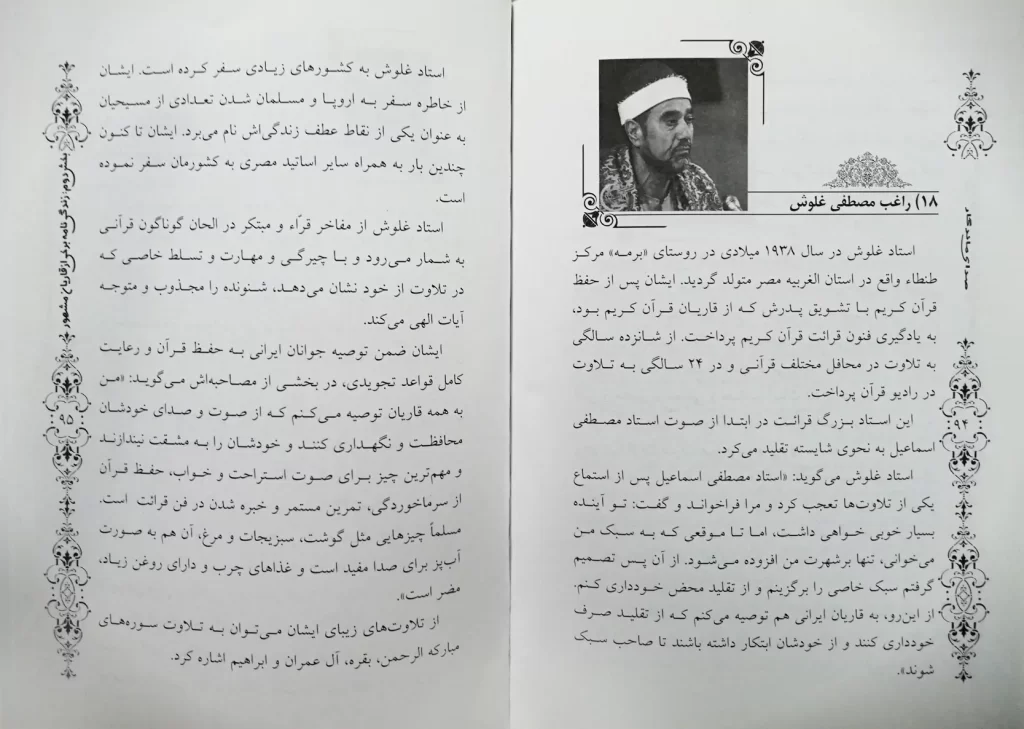 ۱۸) راغب مصطفی غلوش
استاد غلوش در سال ۱۹۳۸ میلادی در روستای «برمه» مرکز
طنطاء واقع در استان الغربیه مصر متولد گردید. ایشان پس از حفظ
قرآن کریم با تشویق پدرش که از قاریان قرآن کریم بود،
به یادگیری فنون قرائت قرآن کریم پرداخت. از شانزده سالگی
به تلاوت در محافل مختلف قرآنی و در ۲۴ سالگی به تلاوت
در رادیو قرآن پرداخت.
این استاد بزرگ قرائت در ابتدا از صوت استاد مصطفی
اسماعیل به نحوی شایسته تقلید می‌کرد.
استاد غلوش می‌گوید: «استاد مصطفی اسماعیل پس از استماع
یکی از تلاوت‌ها تعجب کرد و مرا فراخواند و گفت: تو آینده
بسیار خوبی خواهی داشت، اما تا موقعی که به سبک من
می‌خوانی، تنها برشهرت من افزوده می‌شود. از آن پس تصمیم
گرفتم سبک خاصی را برگزینم و از تقلید محض خودداری کنم.
از این‌رو، به قاریان ایرانی هم توصیه می‌کنم که از تقلید صرف
خودداری کنند و از خودشان ابتکار داشته باشند تا صاحب سبک
شوند».
صدای ماندگار
۹۴
استاد غلوش به کشورهای زیادی سفر کرده است. ایشان
از خاطره سفر به اروپا و مسلمان شدن تعدادی از مسیحیان
به عنوان یکی از نقاط عطف زندگی‌اش نام می‌برد. ایشان تا کنون
چندین بار به همراه سایر اساتید مصری به کشورمان سفر نموده
است.
استاد غلوش از مفاخر قرّاء و مبتکر در الحان گوناگون قرآنی
به شمار می‌رود و با چیرگی و مهارت و تسلط خاصی که
در تلاوت از خود نشان می‌دهد، شنونده را مجذوب و متوجه
آیات الهی می‌کند.
ایشان ضمن توصیه جوانان ایرانی به حفظ قرآن و رعایت
کامل قواعد تجویدی، در بخشی از مصاحبه‌اش می‌گوید: «من
به همه قاریان توصیه می‌کنم که از صوت و صدای خودشان
محافظت و نگهداری کنند و خودشان را به مشقت نیندازند
و مهم‌ترین چیز برای صوت استراحت و خواب، حفظ قرآن
از سرماخوردگی، تمرین مستمر و خبره شدن در فن قرائت است.
مسلماً چیزهایی مثل گوشت، سبزیجات و مرغ، آن هم به صورت
آب‌پز برای صدا مفید است و غذاهای چرب و دارای روغن زیاد،
مضر است».
از تلاوت‌های زیبای ایشان می‌توان به تلاوت سوره‌های
مبارکه الرحمن، بقره، آل عمران و ابراهیم اشاره کرد.
بخش دوم: زندگی نامه برخی از قاریان مشهور
۹۵